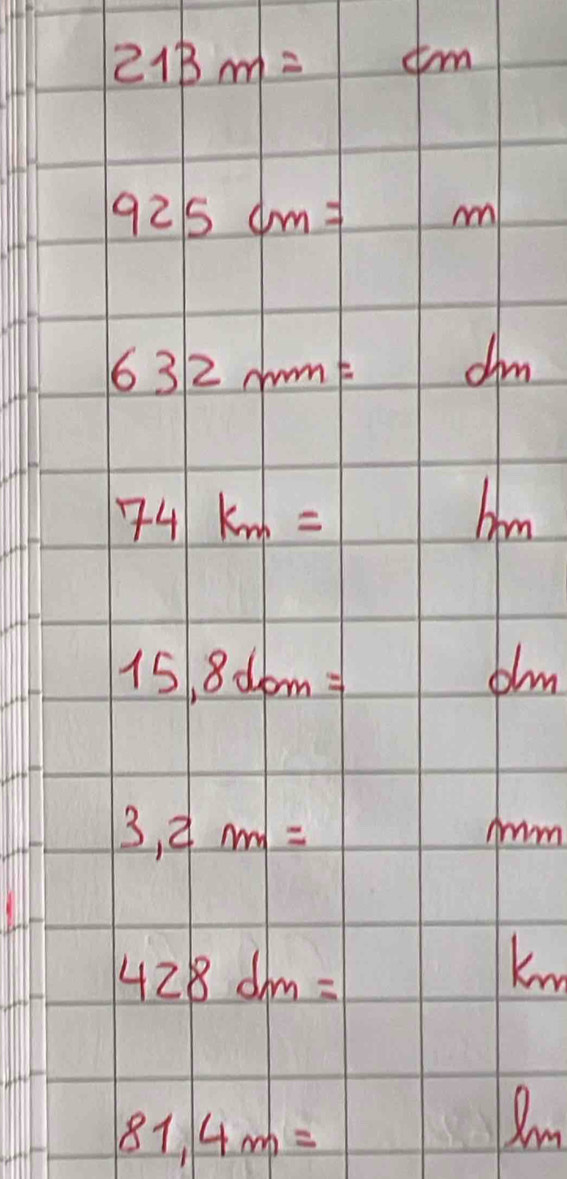 213 m = cm
925 cm = m
632 mm = dm
74 km = hm
15,8 dam = dm
3,2 m = mm
428 dm = km
81,4 m = hm